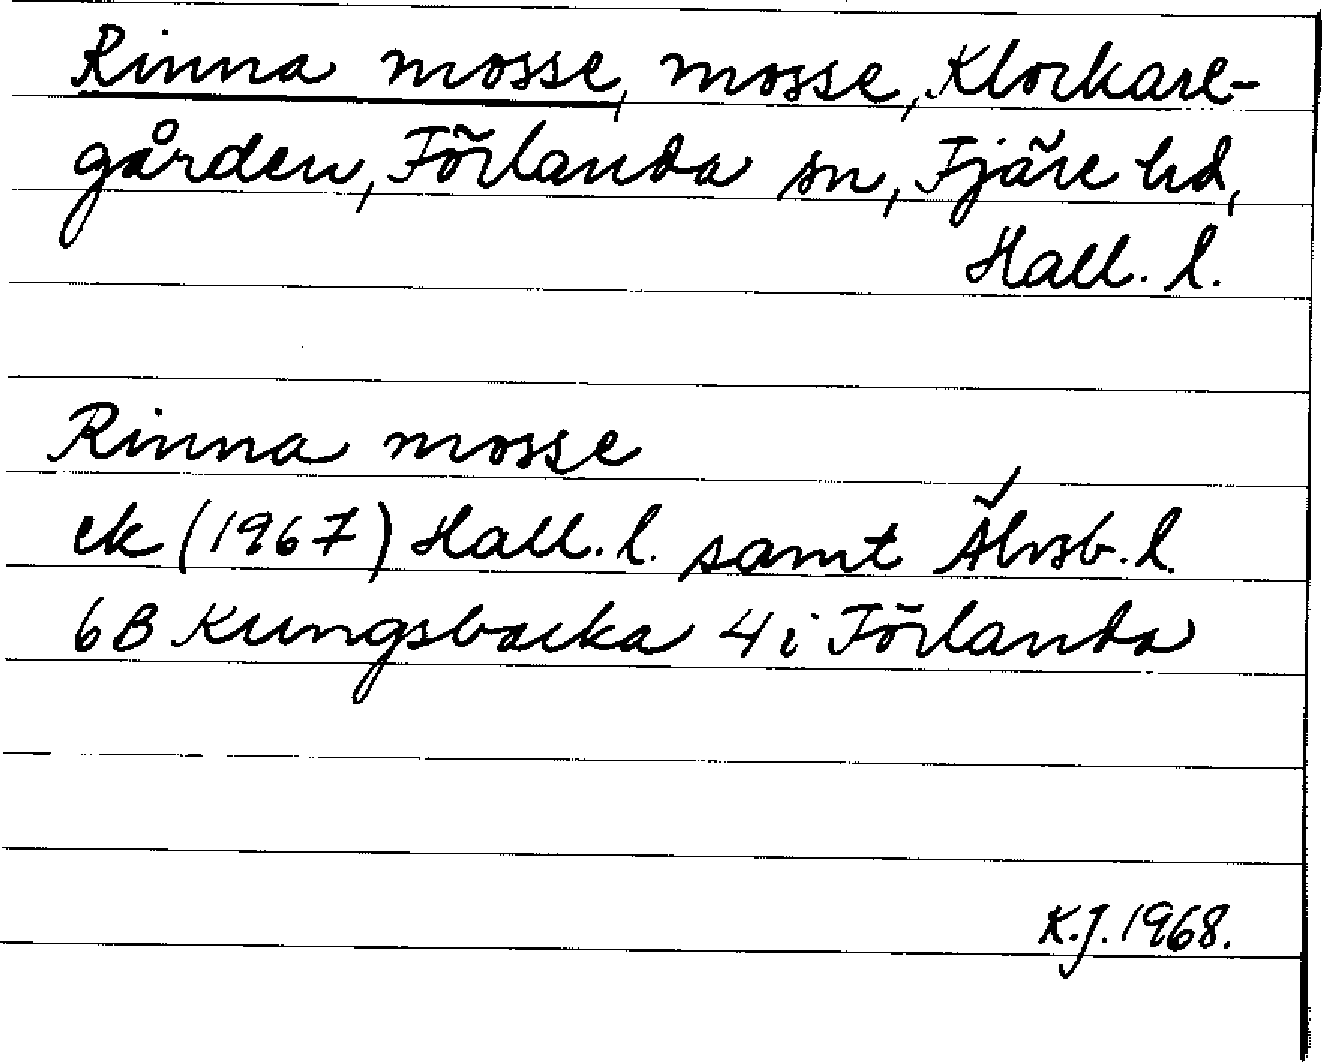 Rinna mosse, mosse, Klockare-
gården, Förlanda sn, Fjäre hd,
Hall. l.
Rinna mosse
ek (1967) Hall. l. samt Älvsb. l.
6B Kungsbacka 4 i Förlanda
K.J. 1968.